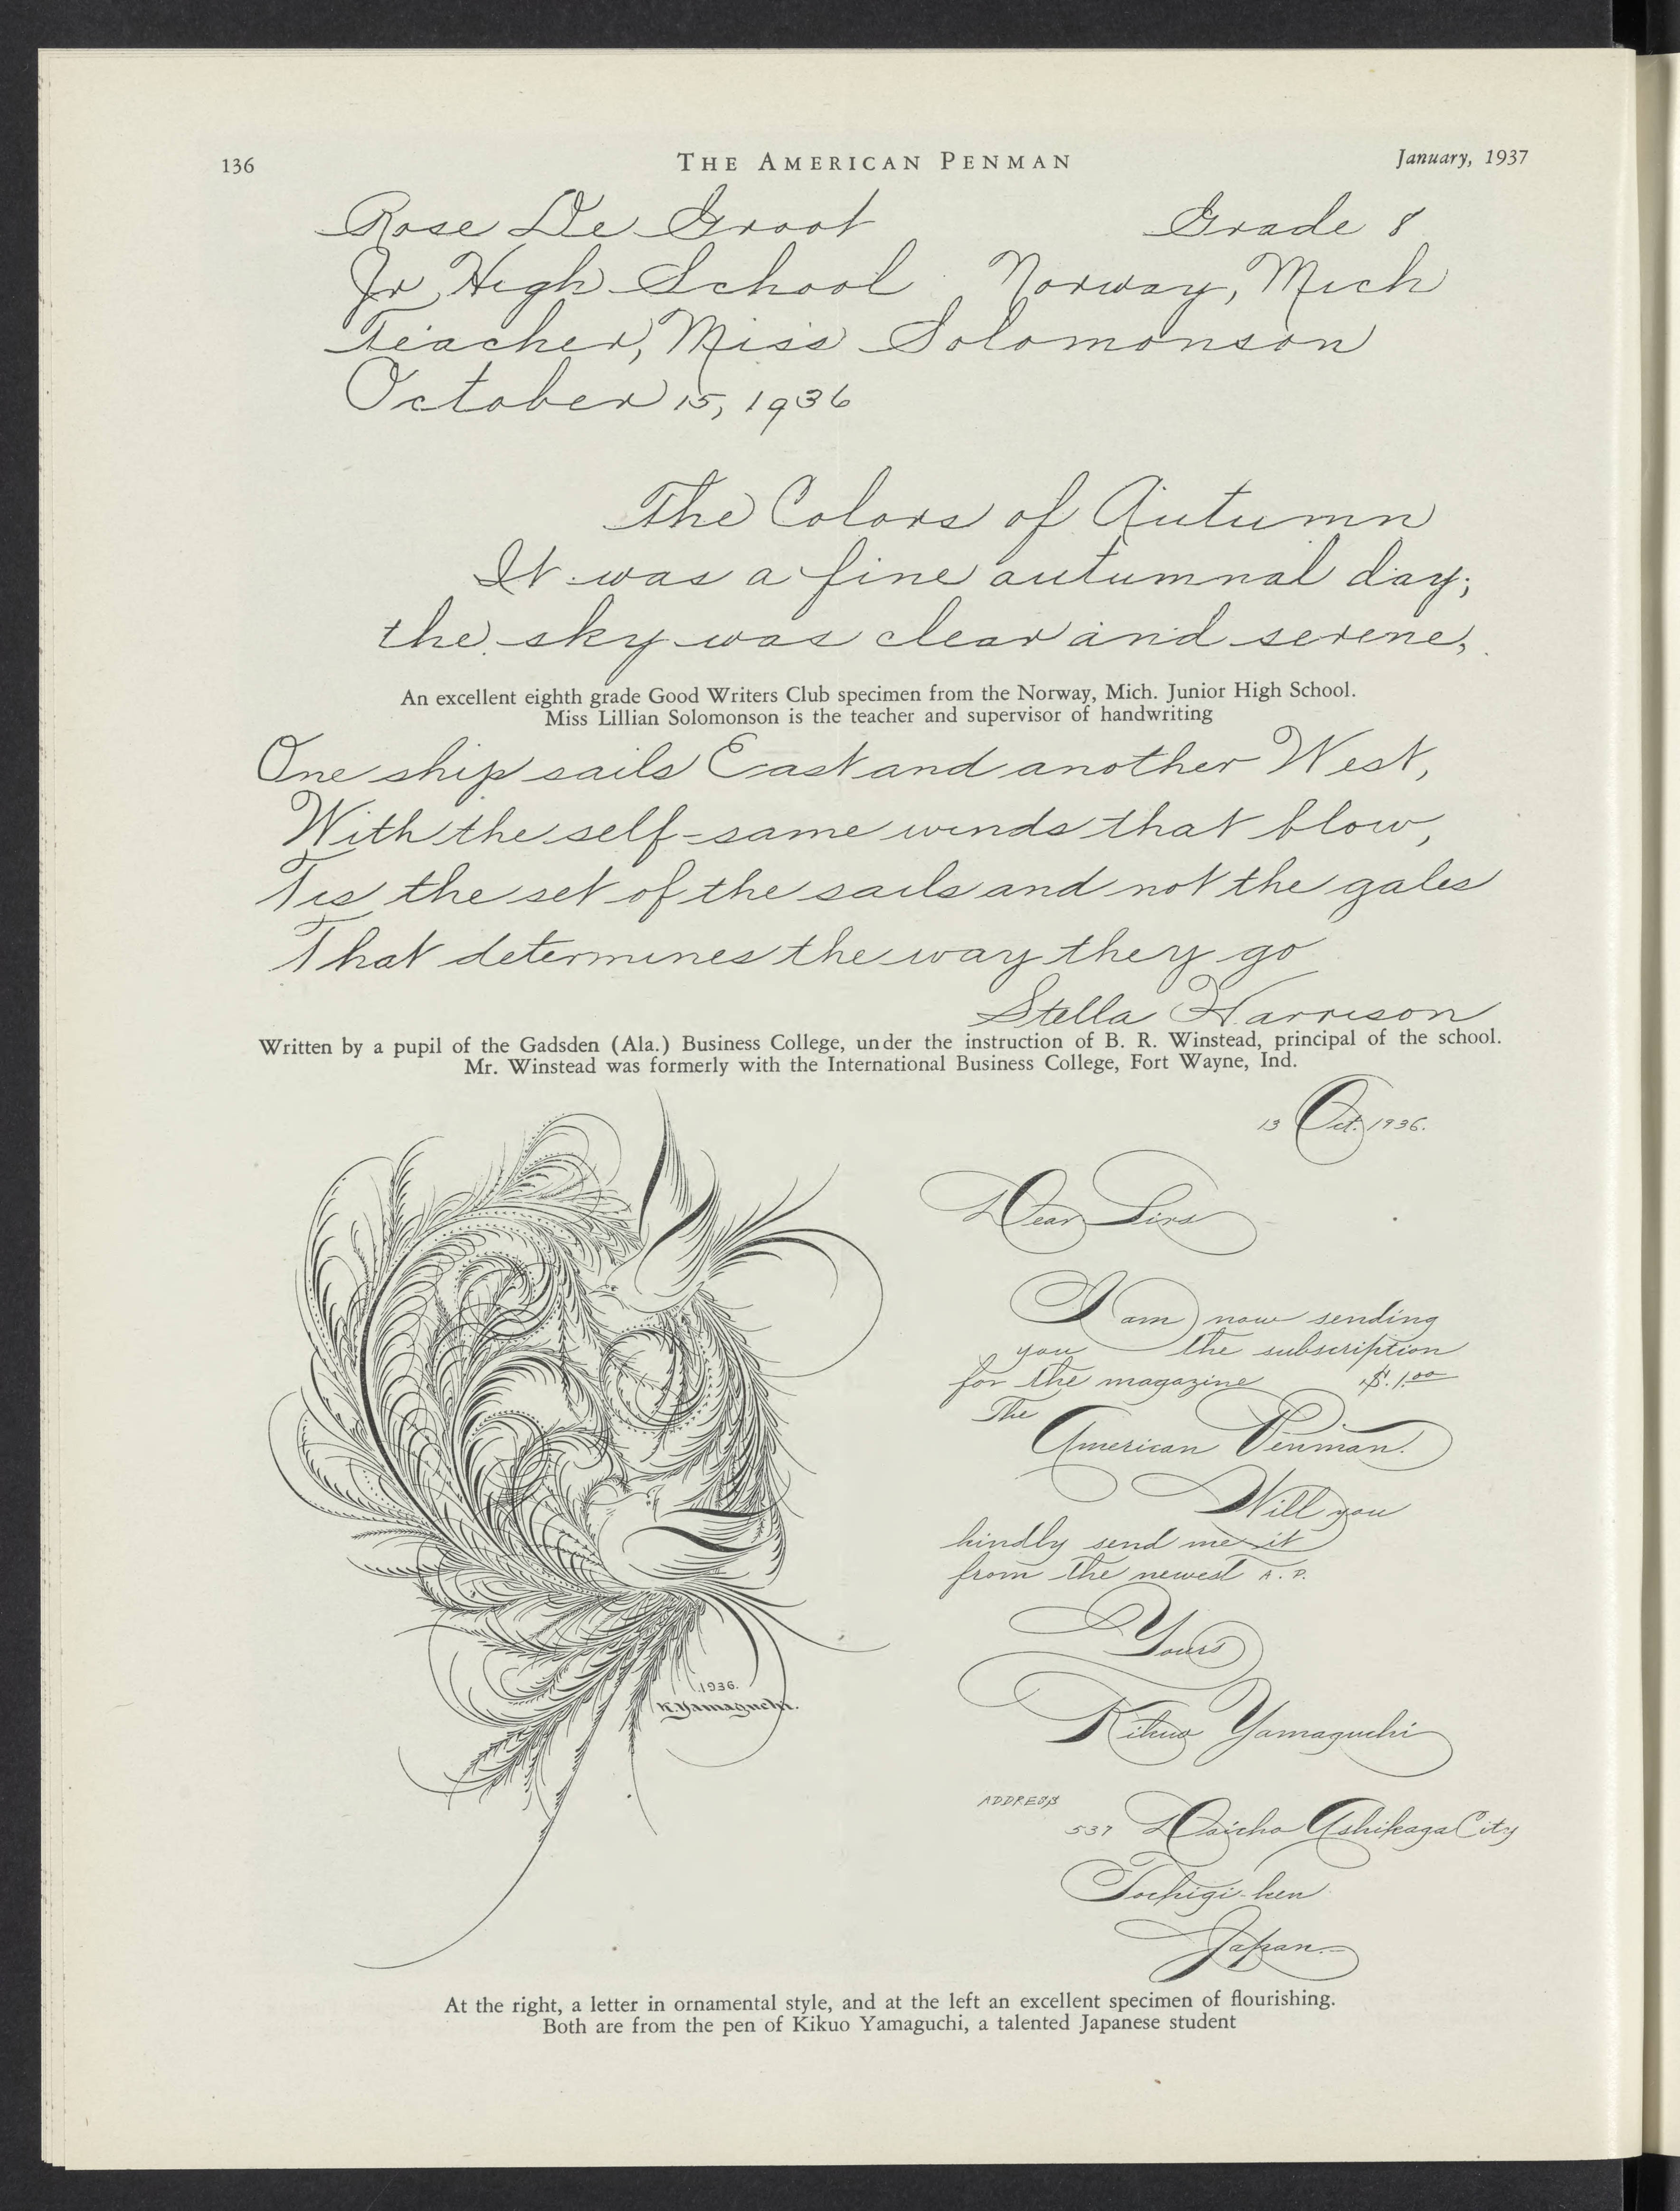 136 THE AMERICAN PENMAN January, 1937
Rose De Groot Grade 8
Jr High School Norway, Mich
Teacher, Miss Solomonson
October 15, 1936
The Colors of Autumn
It was a fine autumnal day;
the sky was clear and serene,
An excellent eighth grade Good Writers Club specimen from the Norway, Mich. Junior High School.
Miss Lillian Solomonson is the teacher and supervisor of handwriting
One ship sails East and another West,
With the self-same winds that blow,
Tis the set of the sails and not the gales
That determines the way they go
Stella Harrison
Written by a pupil of the Gadsden (Ala.) Business College, under the instruction of B. R. Winstead, principal of the school.
Mr. Winstead was formerly with the International Business College, Fort Wayne, Ind.
1936.
K. Yamaguchi.
13 Oct. 1936.
Dear Sirs
I am now sending
you the subscription
for the magazine $.1.00
The
American Penman.
Will you
kindly send me it
from the newest A. P.
Yours
Kikuo Yamaguchi
ADDRESS
537 Daicho Ashikaga City
Tochigi-ken
Japan.
At the right, a letter in ornamental style, and at the left an excellent specimen of flourishing.
Both are from the pen of Kikuo Yamaguchi, a talented Japanese student